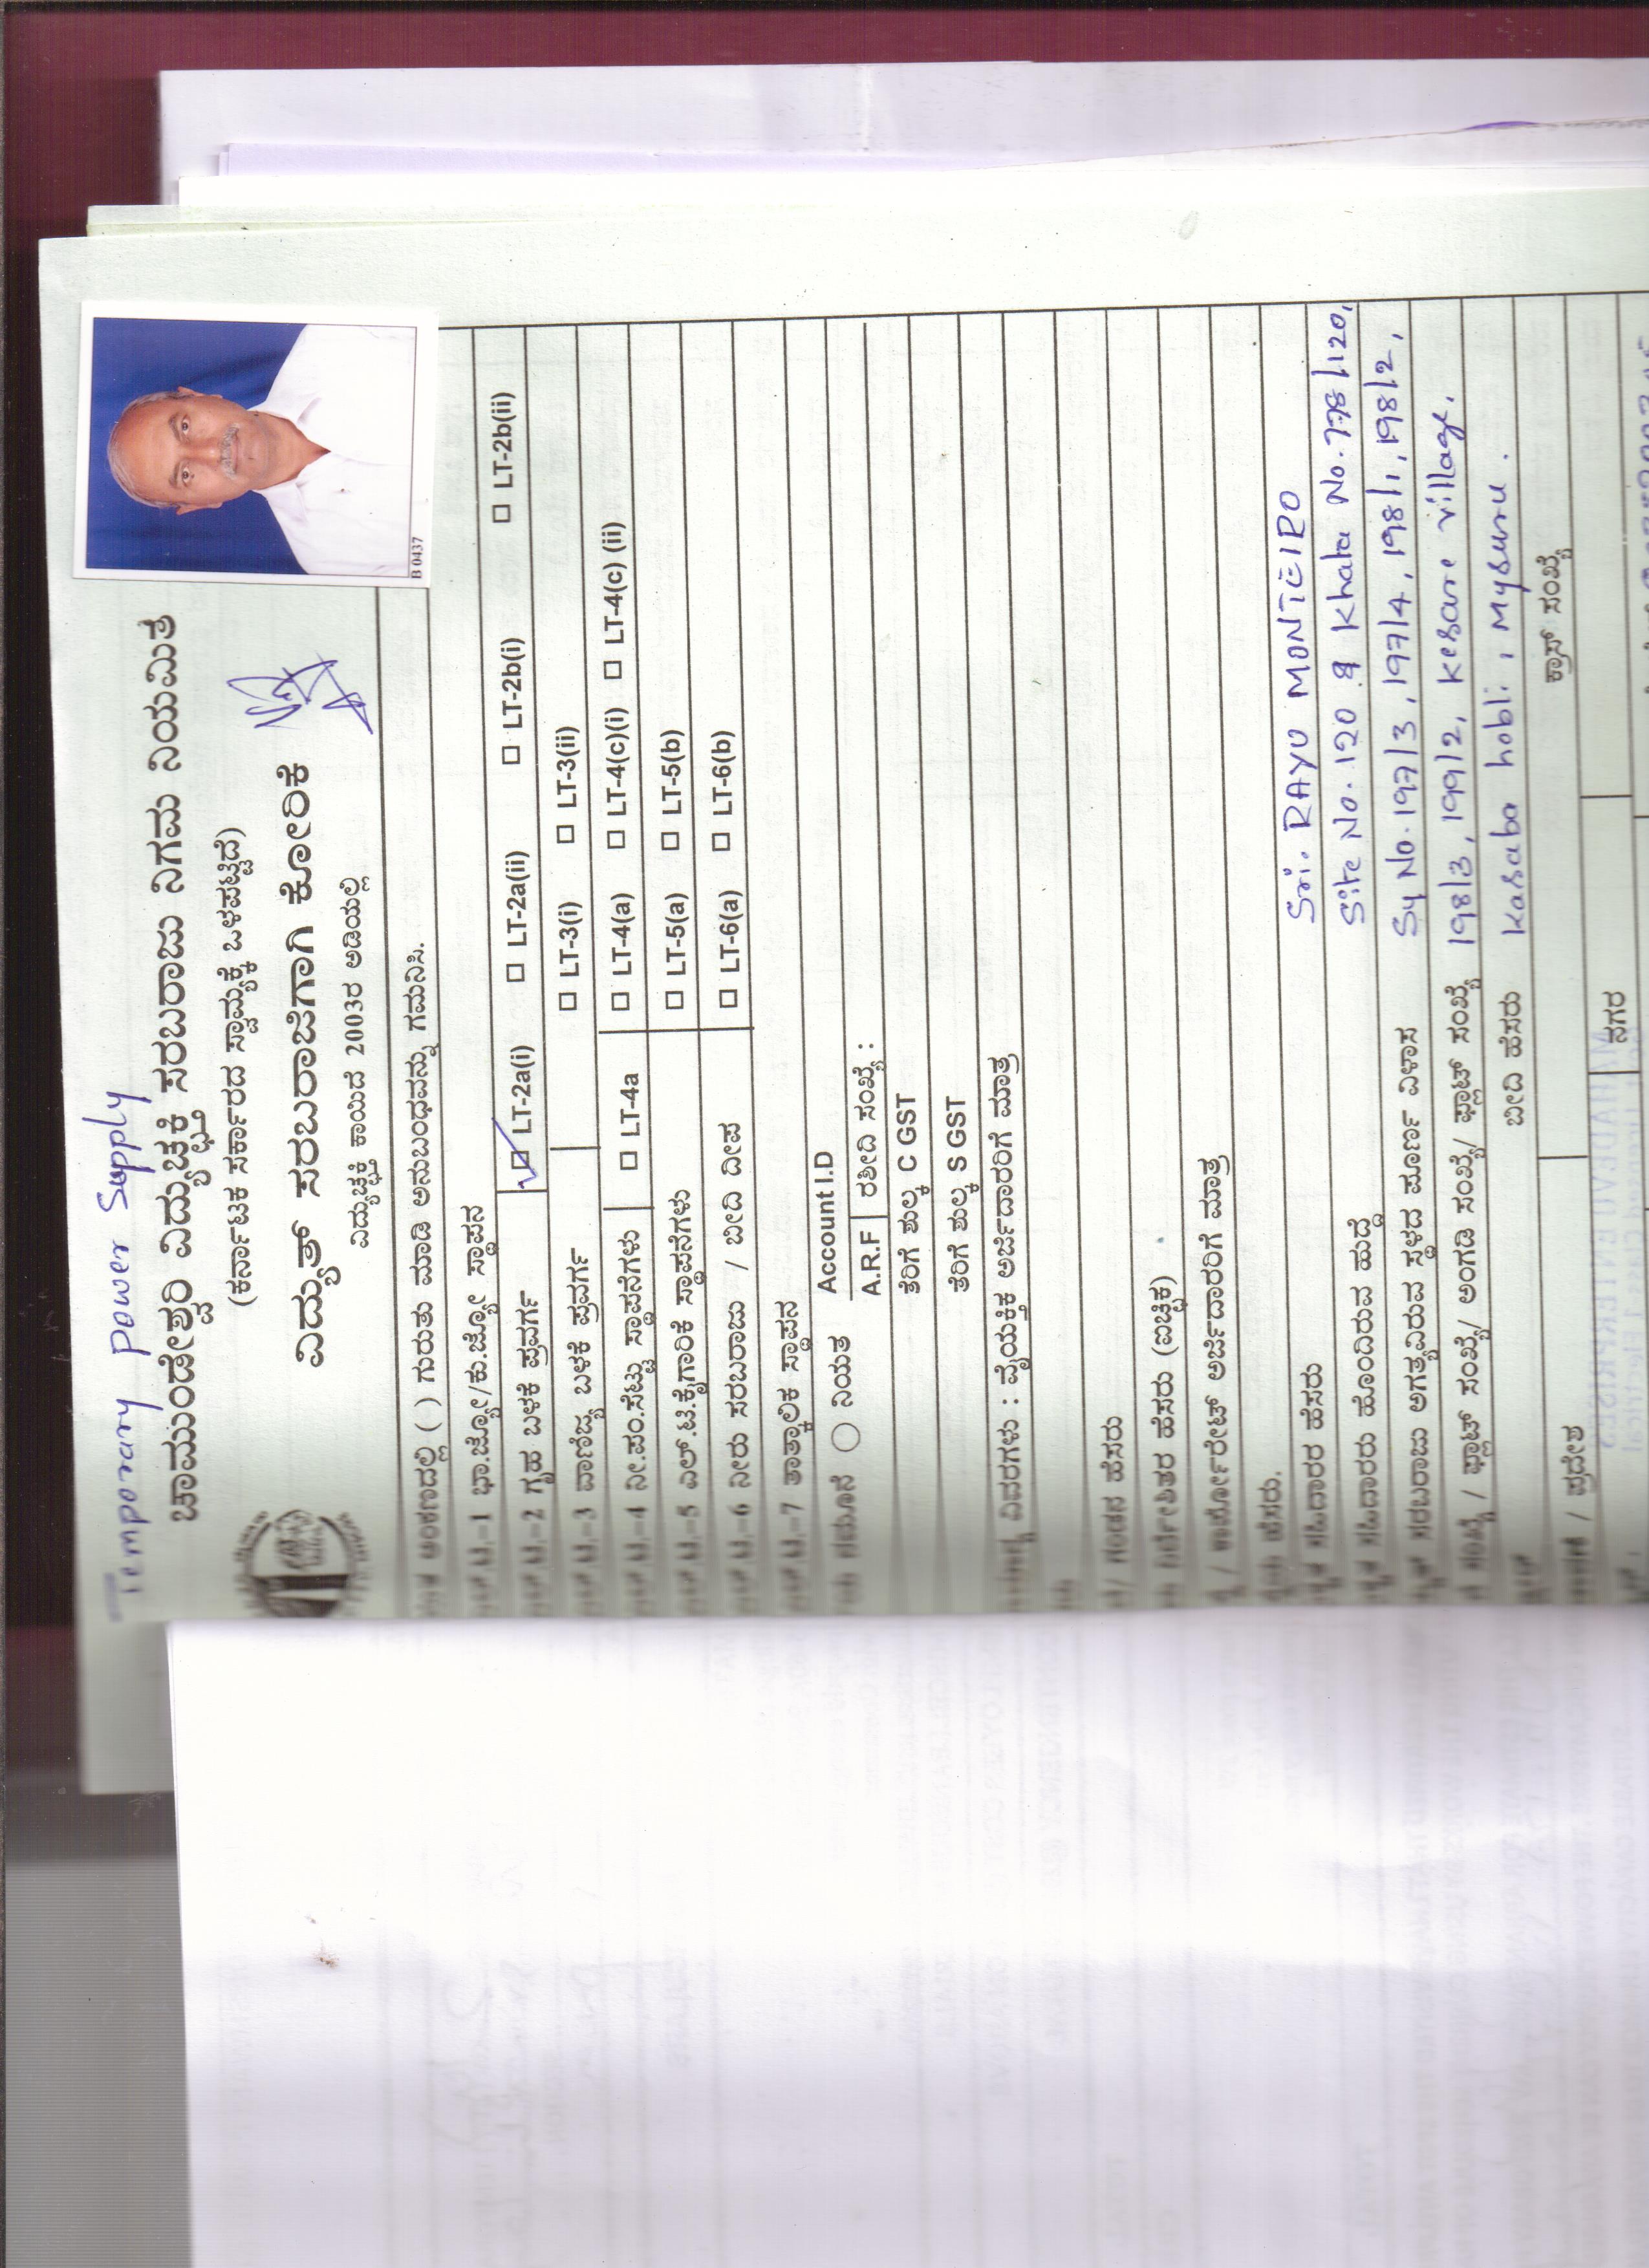 Temporary power Supply
ಚಾಮುಂಡೇಶ್ವರಿ ವಿದ್ಯುಚ್ಛಕ್ತಿ ಸರಬರಾಜು ನಿಗಮ ನಿಯಮಿತ
(ಕರ್ನಾಟಕ ಸರ್ಕಾರದ ಸ್ವಾಮ್ಯಕ್ಕೆ ಒಳಪಟ್ಟಿದೆ)
ವಿದ್ಯುತ್ ಸರಬರಾಜಿಗಾಗಿ ಕೋರಿಕೆ
ವಿದ್ಯುಚ್ಛಕ್ತಿ ಕಾಯಿದೆ 2003ರ ಅಡಿಯಲ್ಲಿ
B 0437
ಅಂಕಣದಲ್ಲಿ ( ) ಗುರುತು ಮಾಡಿ ಅನುಬಂಧವನ್ನು ಗಮನಿಸಿ.
ಟಿ.-1 ಭಾ.ಜ್ಯೋ/ಕು.ಜ್ಯೋ ಸ್ಥಾಪನ
ಟಿ.-2 ಗೃಹ ಬಳಕೆ ಪ್ರವರ್ಗ ☑ LT-2a(i) □ LT-2a(ii) □ LT-2b(i) □ LT-2b(ii)
ಟಿ.-3 ವಾಣಿಜ್ಯ ಬಳಕೆ ಪ್ರವರ್ಗ □ LT-3(i) □ LT-3(ii)
ಟಿ.-4 ನೀ.ಪಂ.ಸೆಟ್ಟು ಸ್ಥಾಪನೆಗಳು □ LT-4a □ LT-4(a) □ LT-4(c)(i) □ LT-4(c) (ii)
ಟಿ.-5 ಎಲ್.ಟಿ.ಕೈಗಾರಿಕೆ ಸ್ಥಾಪನೆಗಳು □ LT-5(a) □ LT-5(b)
ಟಿ.-6 ನೀರು ಸರಬರಾಜು / ಬೀದಿ ದೀಪ □ LT-6(a) □ LT-6(b)
ಟಿ.-7 ತಾತ್ಕಾಲಿಕ ಸ್ಥಾಪನ
ನಮೂನೆ ○ ನಿಯತ Account I.D
A.R.F ರಶೀದಿ ಸಂಖ್ಯೆ :
ತೆರಿಗೆ ಶುಲ್ಕ C GST
ತೆರಿಗೆ ಶುಲ್ಕ S GST
ವಿವರಗಳು : ವೈಯಕ್ತಿಕ ಅರ್ಜಿದಾರರಿಗೆ ಮಾತ್ರ
/ ಗಂಡನ ಹೆಸರು
ಹೆಸರು (ಐಚ್ಛಿಕ)
/ ಕಾರ್ಪೋರೇಟ್ ಅರ್ಜಿದಾರರಿಗೆ ಮಾತ್ರ
ಹೆಸರು.
ಸಹಿದಾರರ ಹೆಸರು Sri. RAYU MONTEIRO
ಸಹಿದಾರರು ಹೊಂದಿರುವ ಹುದ್ದೆ Site No. 120 & Khata No. 778/120,
ಸರಬರಾಜು ಅಗತ್ಯವಿರುವ ಸ್ಥಳದ ಪೂರ್ಣ ವಿಳಾಸ Sy No. 197/3, 197/4, 198/1, 198/2,
ಸಂಖ್ಯೆ / ಫ್ಲಾಟ್ ಸಂಖ್ಯೆ/ ಅಂಗಡಿ ಸಂಖ್ಯೆ/ ಪ್ಲಾಟ್ ಸಂಖ್ಯೆ 198/3, 199/2, Kesare village,
ಬೀದಿ ಹೆಸರು Kasaba hobli, Mysuru.
ಕ್ರಾಸ್ ಸಂಖ್ಯೆ
/ ಪ್ರದೇಶ ನಗರ